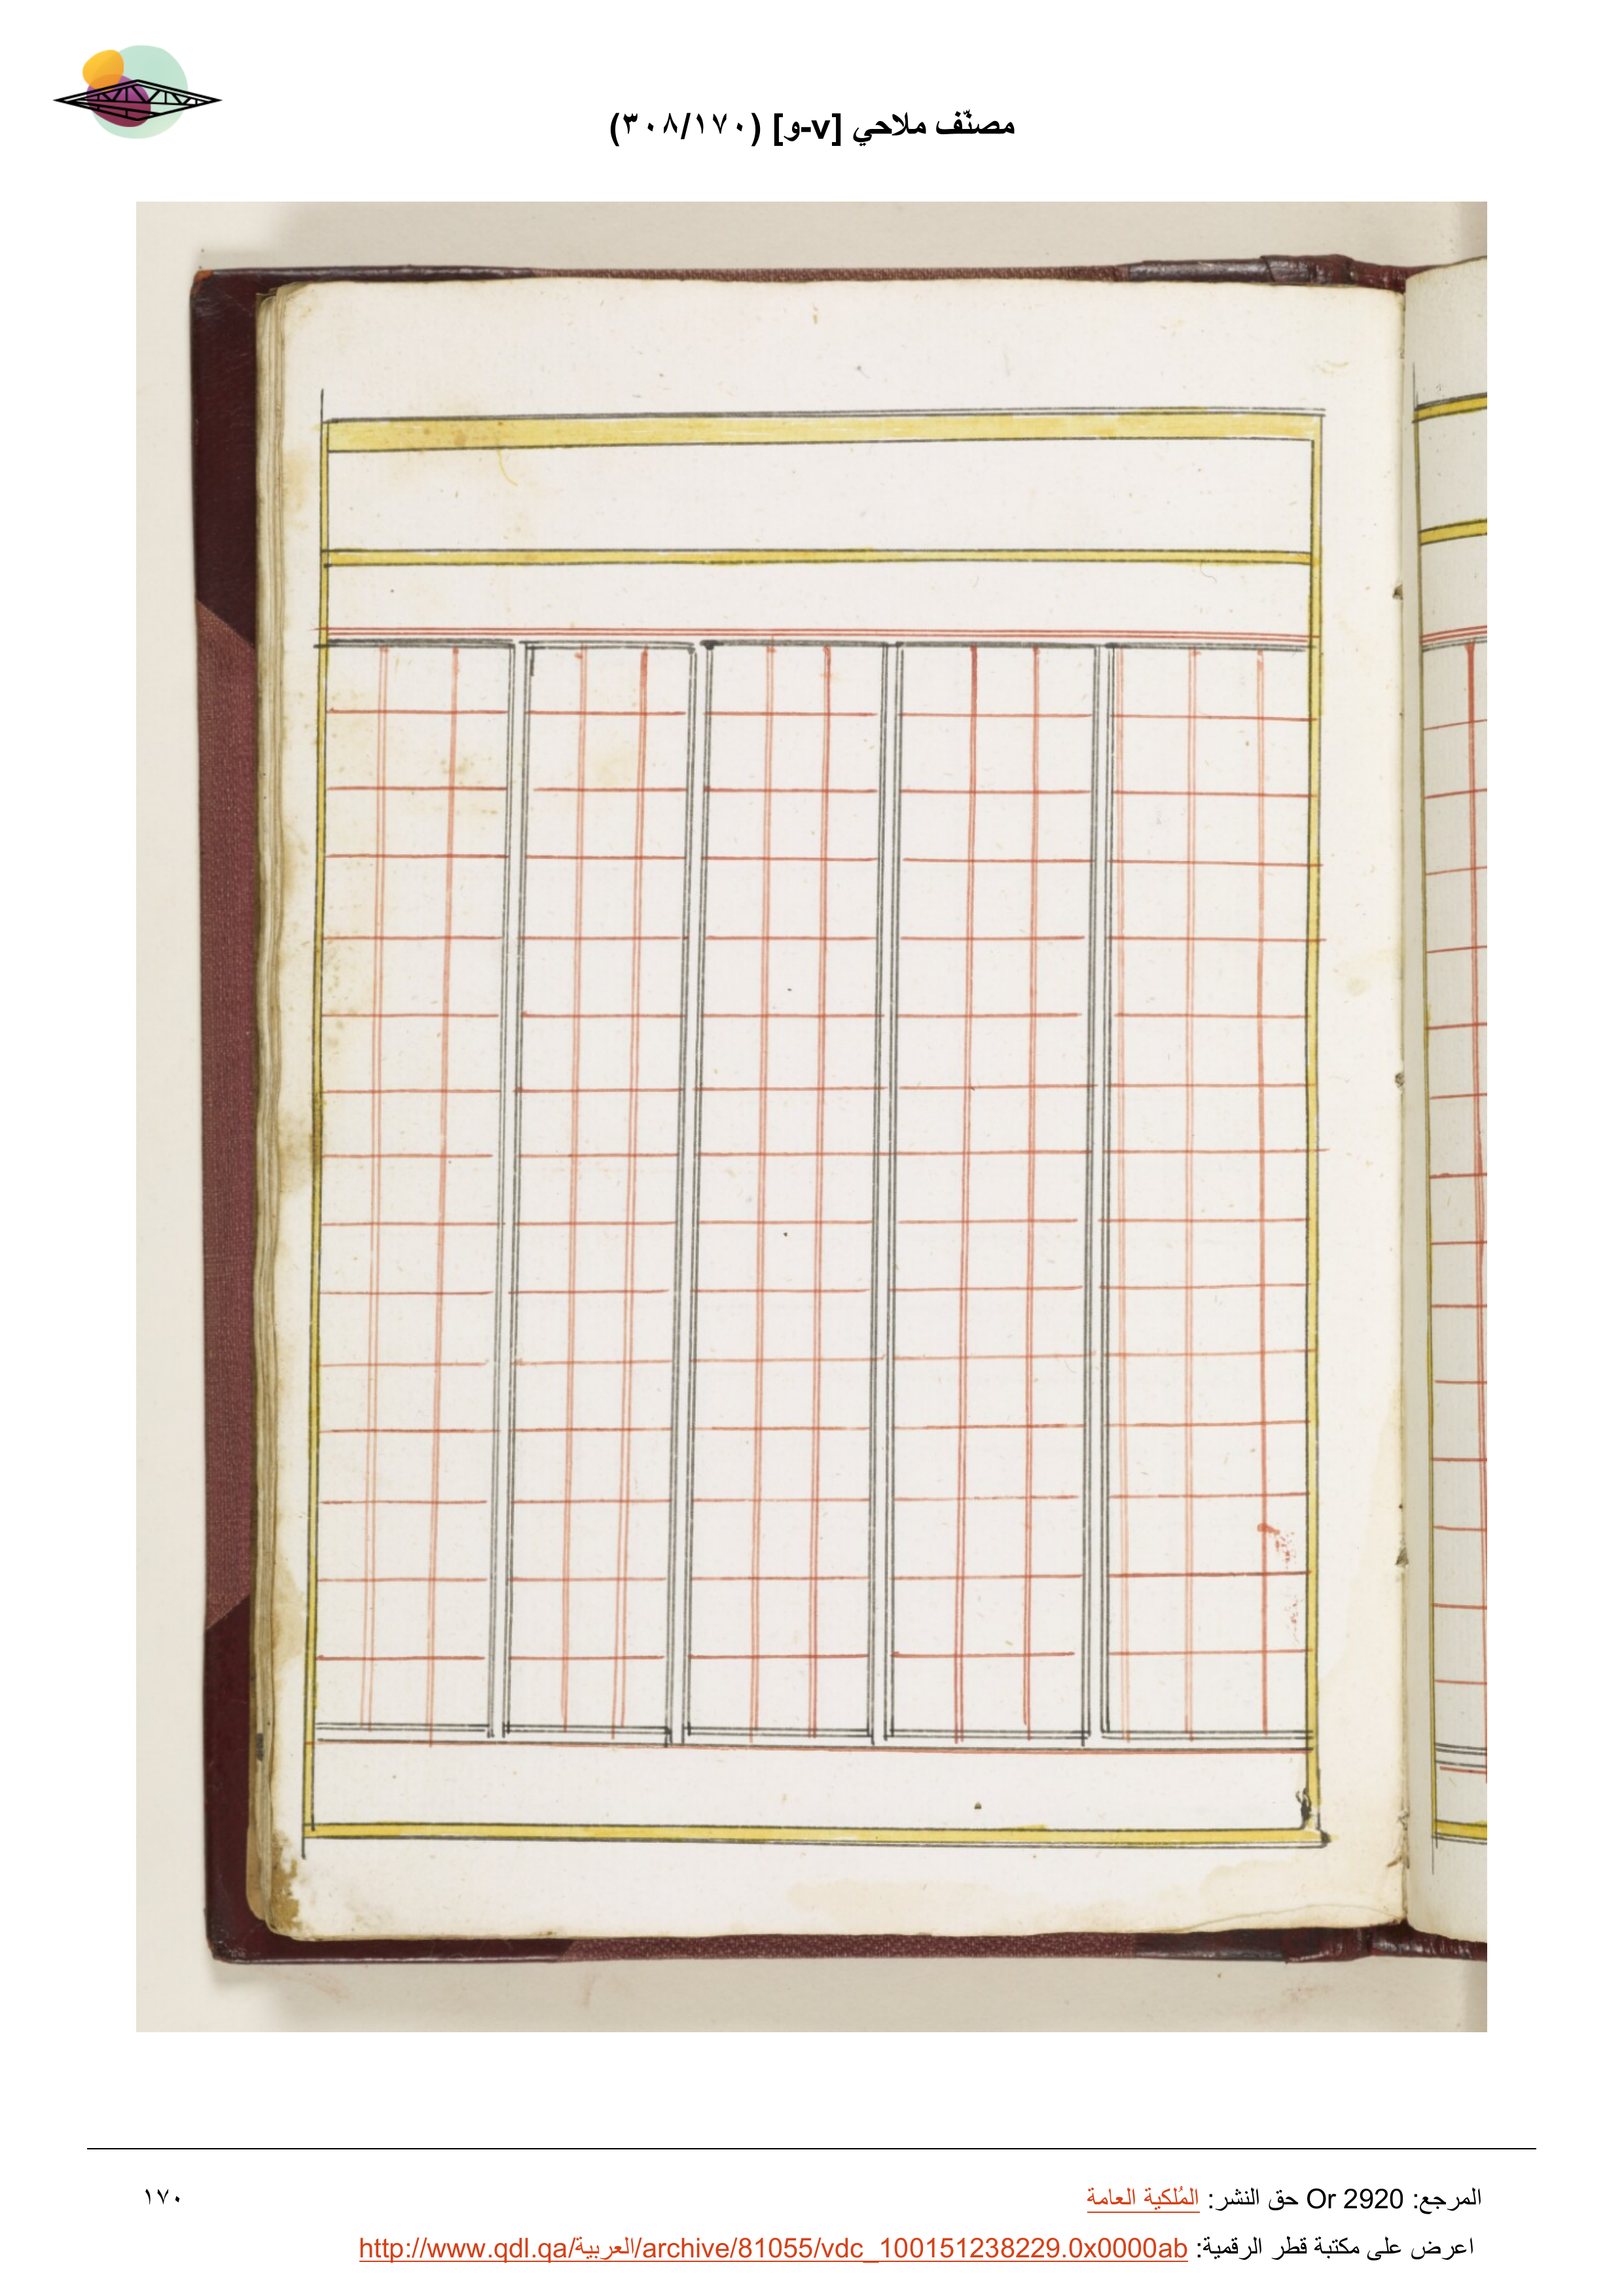 مصنّف ملاحي [v-و] (٣٠٨/١٧٠)
المرجع: Or 2920 حق النشر: المُلكية العامة
١٧٠
اعرض على مكتبة قطر الرقمية: http://www.qdl.qa/العربية/archive/81055/vdc_100151238229.0x0000ab